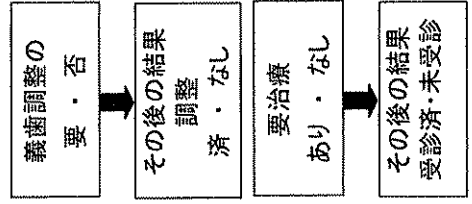 義歯調整の
要 ・ 否
その後の結果
調整
済 ・ なし
要治療
あり ・ なし
その後の結果
受診済・未受診